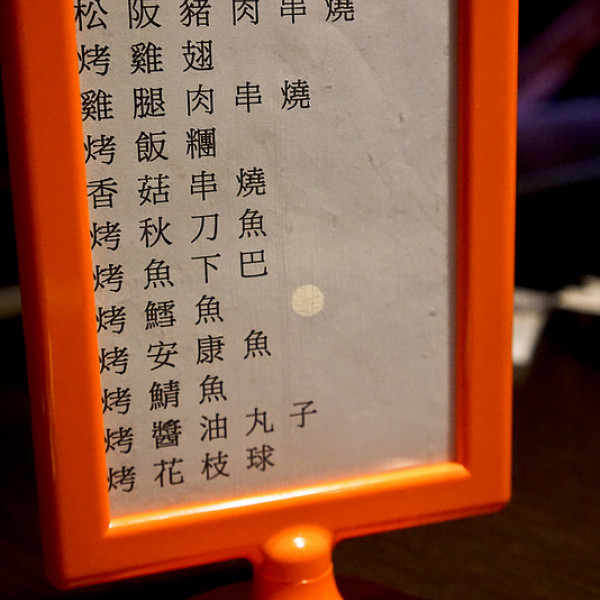 松阪豬肉串燒
烤雞翅
雞腿肉串燒
烤飯糰
香菇串燒
烤秋刀魚
烤魚下巴
烤鱈魚
烤安康魚
烤鯖魚
烤醬油丸子
烤花枝球